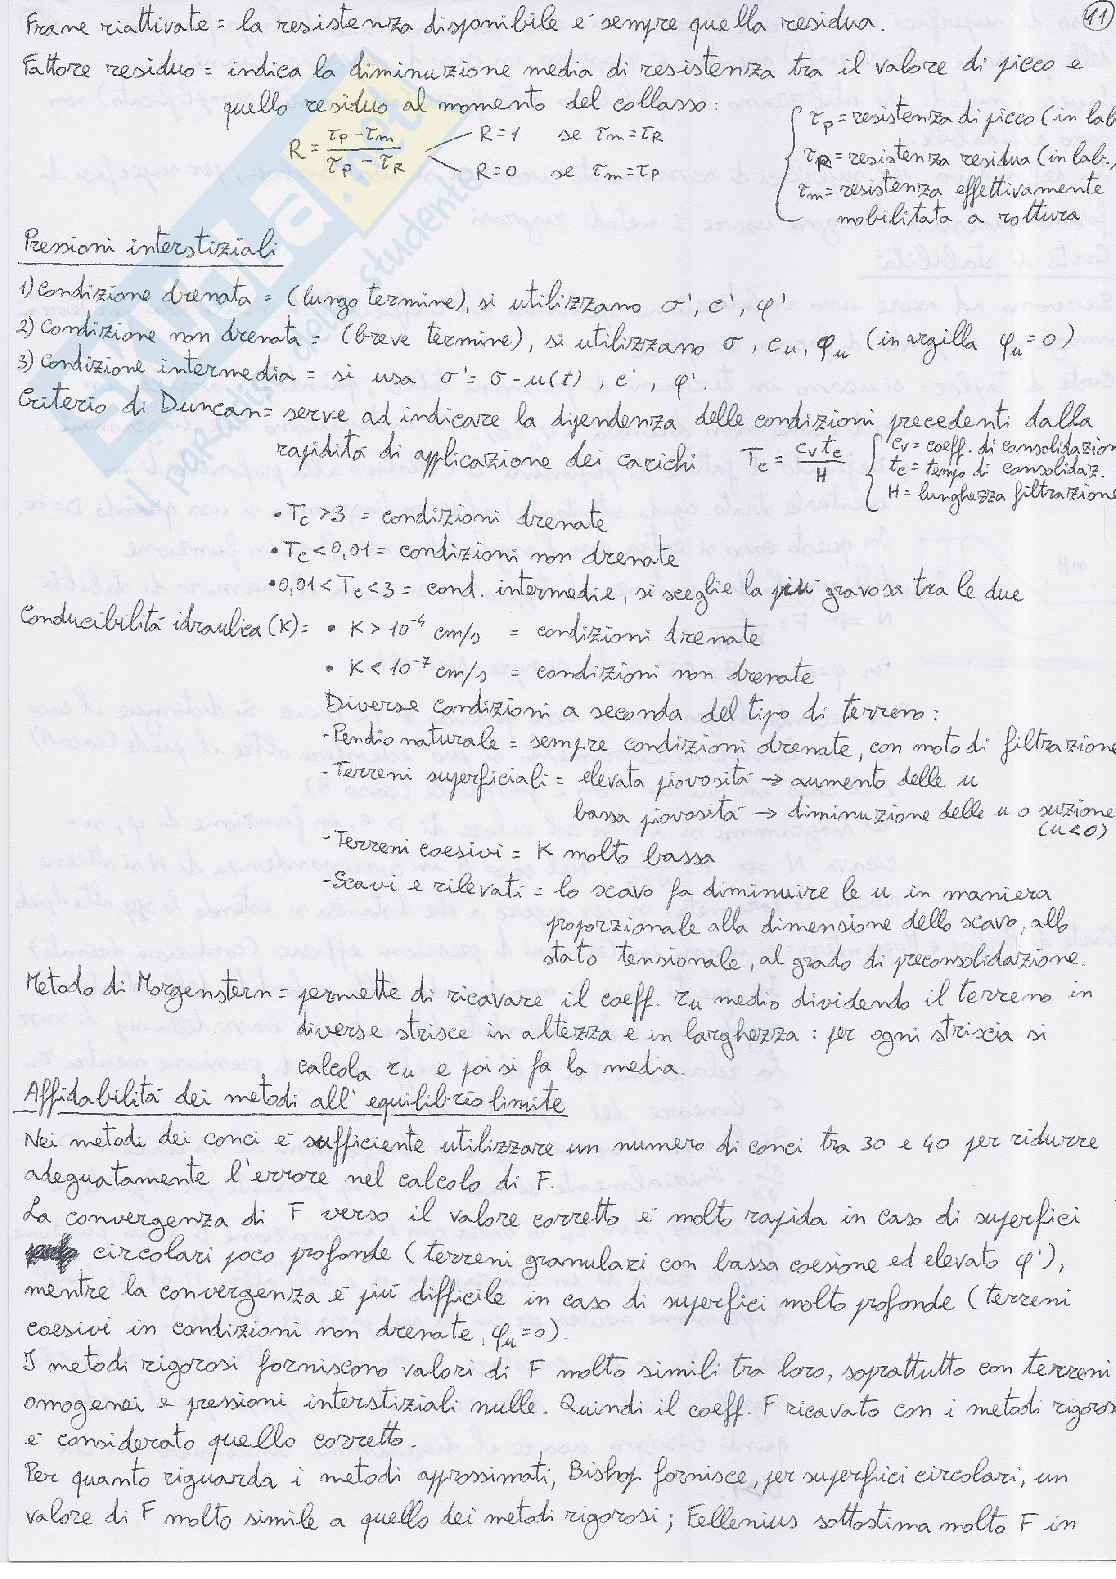 11
Frane riattivate = la resistenza disponibile è sempre quella residua.
Fattore residuo = indica la diminuzione media di resistenza tra il valore di picco e
quello residuo al momento del collasso:
R = (τP - τm) / (τP - τR)
R=1 se τm = τR
R=0 se τm = τP
τp = resistenza di picco (in lab
τR = resistenza residua (in lab.)
τm = resistenza effettivamente
mobilitata a rottura
Pressioni interstiziali
1) Condizione drenata = (lungo termine), si utilizzano σ', c', φ'
2) Condizione non drenata = (breve termine), si utilizzano σ, cu, φu (in argilla φu=0)
3) Condizione intermedia = si usa σ' = σ - u(t), c', φ'.
Criterio di Duncan = serve ad indicare la dipendenza delle condizioni precedenti dalla
rapidità di applicazione dei carichi Tc = cv tc / H
cv = coeff. di consolidazion
tc = tempo di consolidaz.
H = lunghezza filtrazione
• Tc > 3 = condizioni drenate
• Tc < 0,01 = condizioni non drenate
• 0,01 < Tc < 3 = cond. intermedie, si sceglie la più gravosa tra le due
Conducibilità idraulica (K) = • K > 10⁻⁴ cm/s = condizioni drenate
• K < 10⁻⁷ cm/s = condizioni non drenate
Diverse condizioni a seconda del tipo di terreno:
- Pendio naturale = sempre condizioni drenate, con moto di filtrazione
- Terreni superficiali = elevata piovosità → aumento delle u
bassa piovosità → diminuzione delle u o suzione
(u<0)
- Terreni coesivi = K molto bassa
- Scavi e rilevati = lo scavo fa diminuire le u in maniera
proporzionale alla dimensione dello scavo, allo
stato tensionale, al grado di preconsolidazione.
Metodo di Morgenstern = permette di ricavare il coeff. ru medio dividendo il terreno in
diverse strisce in altezza e in larghezza: per ogni striscia si
calcola ru e poi si fa la media.
Affidabilità dei metodi all'equilibrio limite
Nei metodi dei conci è sufficiente utilizzare un numero di conci tra 30 e 40 per ridurre
adeguatamente l'errore nel calcolo di F.
La convergenza di F verso il valore corretto è molto rapida in caso di superfici
circolari poco profonde (terreni granulari con bassa coesione ed elevato φ'),
mentre la convergenza è più difficile in caso di superfici molto profonde (terreni
coesivi in condizioni non drenate, φu=0).
I metodi rigorosi forniscono valori di F molto simili tra loro, soprattutto con terreni
omogenei e pressioni interstiziali nulle. Quindi il coeff. F ricavato con i metodi rigoros
è considerato quello corretto.
Per quanto riguarda i metodi approssimati, Bishop fornisce, per superfici circolari, un
valore di F molto simile a quello dei metodi rigorosi; Fellenius sottostima molto F in